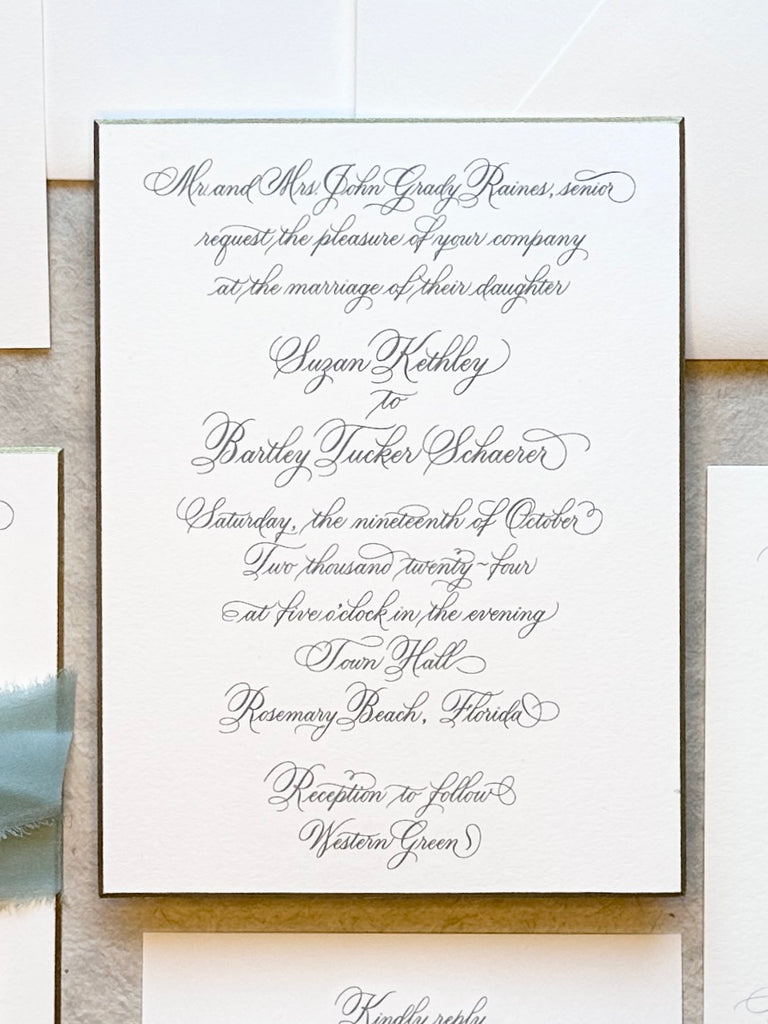 Mr. and Mrs. John Grady Raines, senior
request the pleasure of your company
at the marriage of their daughter
Suzan Kethley
to
Bartley Tucker Schaerer
Saturday, the nineteenth of October
Two thousand twenty~four
at five o'clock in the evening
Town Hall
Rosemary Beach, Florida
Reception to follow
Western Green
Kindly reply